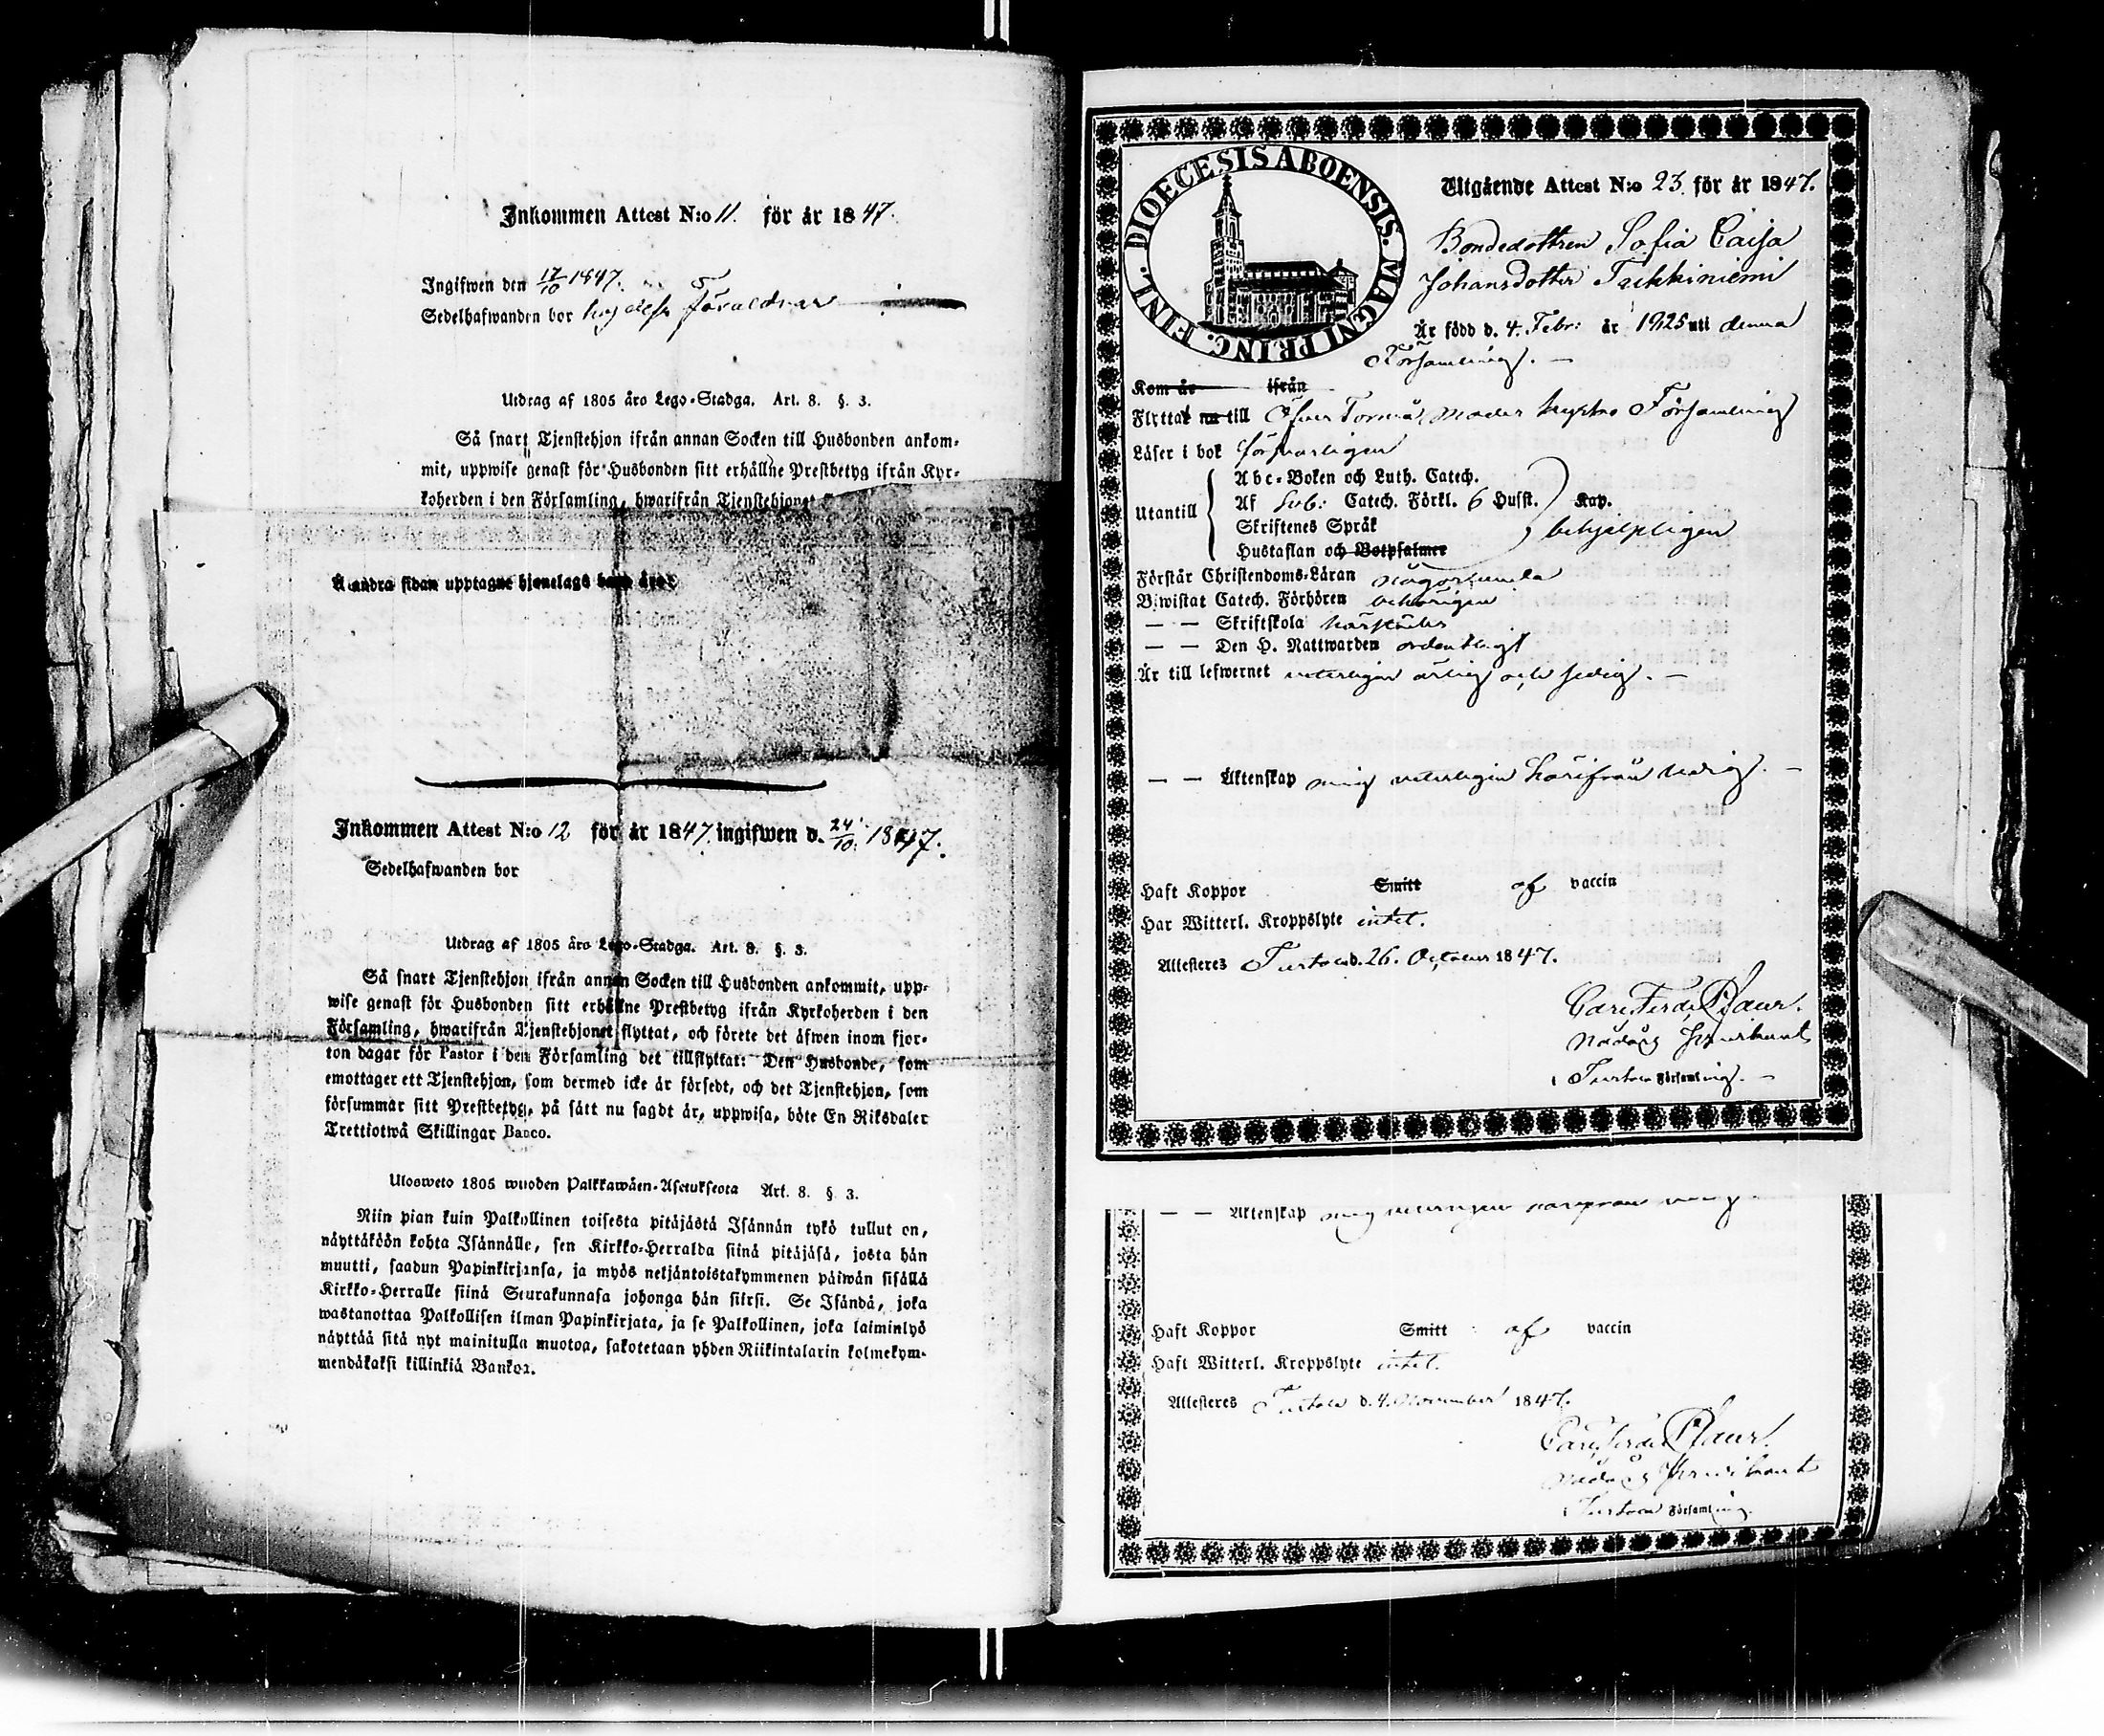 Inkommen Attest N:o 11. för år 1847.
Ingifwen den 17/10 1847.
Sedelhafwanden bor hos dess Föräldrar
Utdrag af 1805 års Lego-Stadga. Art. 8. §. 3.
Så snart Tjenstehjon ifrån annan Socken till Husbonden ankom-
mit, uppwise genast för Husbonden sitt erhållne Prestbetyg ifrån Kyr-
koherden i den Församling, hwarifrån Tjenstehjonet
Å andra sidan upptagne hjonelags barn äro:
Inkommen Attest N:o 12 för år 1847. ingifwen d. 24/10. 1847.
Sedelhafwanden bor
Utdrag af 1805 års Lego-Stadga. Art. 8. §. 3.
Så snart Tjenstehjon ifrån annan Socken till Husbonden ankommit, upp-
wise genast för Husbonden sitt erhållne Prestbetyg ifrån Kyrkoherden i den
Församling, hwarifrån Tjenstehjonet flyttat, och förete det äfwen inom fjor-
ton dagar för Pastor i den Församling det tillflyttat: Den Husbonde, som
emottager ett Tjenstehjon, som dermed icke är försedt, och det Tjenstehjon, som
försummar sitt Prestbetyg, på sätt nu sagdt är, uppwisa, böte En Riksdaler
Trettiotwå Skillingar Banco.
Ulosweto 1805 wuoden Palkkawäen-Asetuksesta Art. 8. § 3.
Niin pian kuin Palkollinen toisesta pitäjästä Isännän tykö tullut on,
näyttäköön kohta Isännälle, sen Kirkko-Herralda siinä pitäjäsä, josta hän
muutti, saadun Papinkirjansa, ja myös neljäntoistakymmenen päiwän sisällä
Kirkko-Herralle siinä Seurakunnasa johonga hän siirsi. Se Isändä, joka
wastanottaa Palkollisen ilman Papinkirjata, ja se Palkollinen, joka laiminlyö
näyttää sitä nyt mainitulla muotoa, sakotetaan yhden Riikintalarin kolmekym-
mendäkaksi killinkiä Bankoa.
DIOECESIS ABOENSIS. MAGNI PRINC. FINL.
Utgående Attest N:o 23. för år 1847.
Bondedottren Sofia Caisa
Johansdotter Tukkiniemi
Är född d. 4. Febr: år 1825 uti denna
Församling. —
Kom år ifrån
Flyttat nu till Öfver Torneå Moder kyrko Församling
Läser i bok försvarligen
Utantill
Abc-Boken och Luth. Catech.
Af Sv: Catech. Förkl. 6 Husst. Kap.
Skriftenes Språk behjelpligen
Hustaflan och Botpsalmer
Förstår Christendoms-Läran någorlunda
Biwistat Catech. Förhören behörigen
— — Skriftskola härstädes
— — Den H. Nattwarden ordentligt
Är till lefwernet veterligen ärlig och sedig. —
— — Äktenskap mig veterligen härifrån ledig. —
Haft Koppor Smitt af vaccin
Har Witterl. Kroppslyte intet.
Attesteres Turtola d. 26. October 1847.
Carl Ferd: Planr.
Nådårs Prædikant
i Turtola Församling. —
— — Äktenskap mig veterligen härifrån ledig
Haft Koppor Smitt af vaccin
Haft Witterl. Kroppslyte intet.
Attesteres Turtola d. 4. November 1847.
Carl Ferd: Planr.
Nådårs Prædikant
i Turtola Församling.